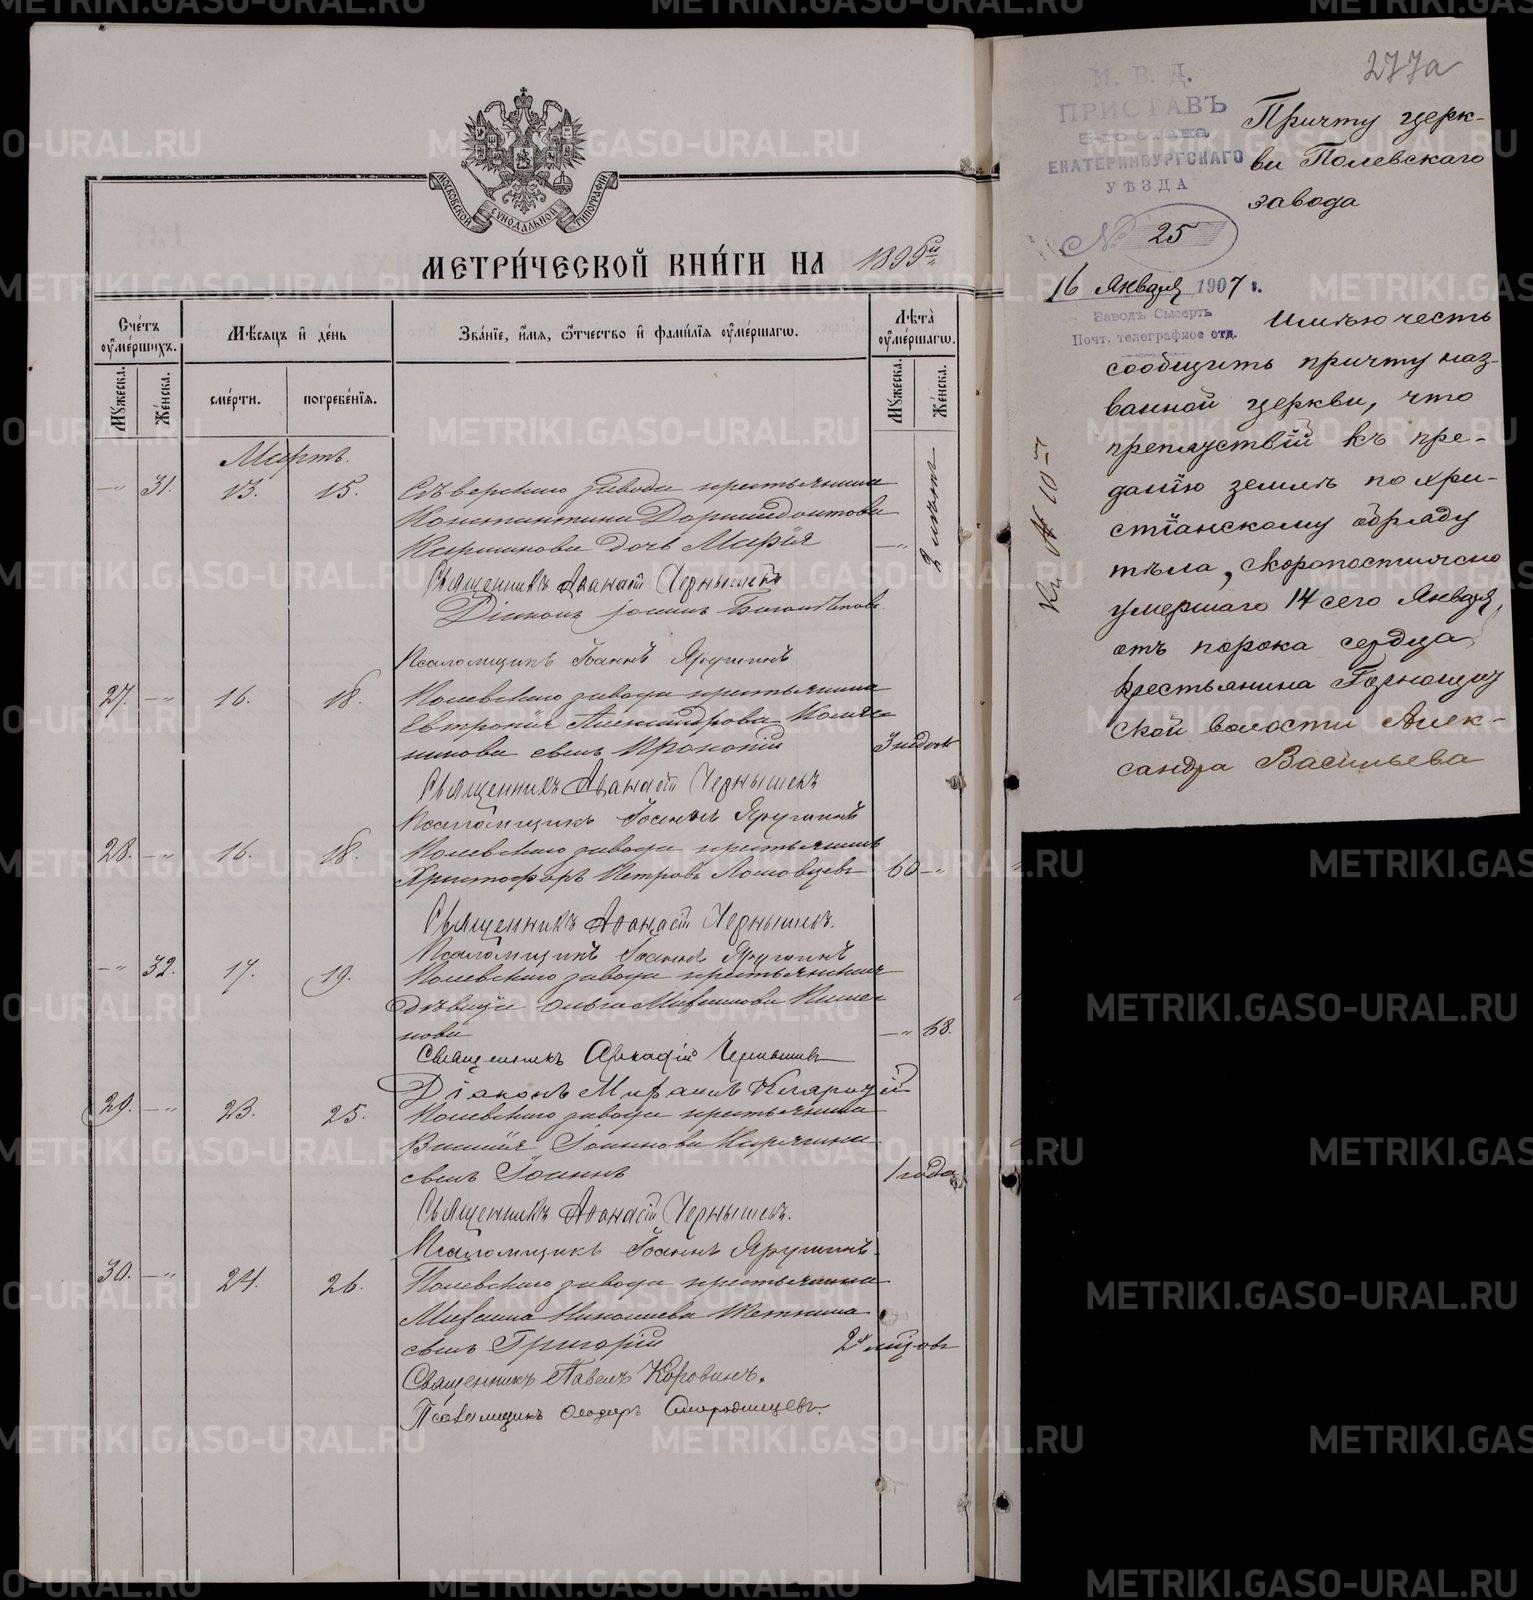 МОСКОВСКОЙ СѴНОДАЛЬНОЙ ТИПОГРАФИИ
МЕТРИ́ЧЕСКОЙ КНИ́ГИ НА
Сче́тъ оу҆ме́ршихъ.
Мѣ́сяцъ и҆ де́нь
Зва́нїе, и҆́мя, ѻ҆́тчество и҆ фами́лїя оу҆ме́ршагѡ.
Лѣта̀ оу҆ме́ршагѡ.
Мꙋ́жеска.
Же́нска.
сме́рти.
погребе́нїя.
Мꙋ́жеска.
Же́нска.
Мартъ.
31. 13. 15. Сѣверскаго завода крестьянина
Константина
дочь Марія
Священникъ Аѳанасій Чернышевъ
Діаконъ
Псаломщикъ Іоаннъ Ярушинъ
27. 16. 18. Полевскаго завода крестьянина
Евтропія Александрова
сынъ Прокопій 3 недѣли
Священникъ Аѳанасій Чернышевъ
Псаломщикъ Іоаннъ Ярушинъ
28. 16. 18. Полевскаго завода крестьянинъ
Христофоръ Петровъ 60
Священникъ Аѳанасій Чернышевъ.
Псаломщикъ Іоаннъ Ярушинъ
32. 17. 19. Полевскаго завода крестьянская
дѣвица
68.
Священникъ Чернышевъ
Діаконъ Михаилъ
29. 23. 25. Полевскаго завода крестьянина
Василія Іоаннова
сынъ Іоаннъ 1 года
Священникъ Аѳанасій Чернышевъ.
Псаломщикъ Іоаннъ Ярушинъ
30. 24. 26. Полевскаго завода крестьянина
Михаила Николаева
сынъ Григорій
Священникъ Павелъ Коровинъ.
Псаломщикъ Ѳеодоръ Смородинцевъ.
277а
М. В. Д.
ПРИСТАВЪ
5-го стана
ЕКАТЕРИНБУРГСКАГО
УѢЗДА
№ 25
16 Января 1907 г.
Заводъ Сысерть
Почт. телеграфное отд.
Причту церк-
ви Полевскаго
завода
Имѣю честь
сообщить причту наз-
ванной церкви, что
препятствій къ пре-
данію землѣ по хри-
стіанскому обряду
тѣла, скоропостижно
умершаго 14 сего Января,
отъ порока сердца
крестьянина Горнощит
ской волости Алек-
сандра Васильева
METRIKI.GASO-URAL.RU